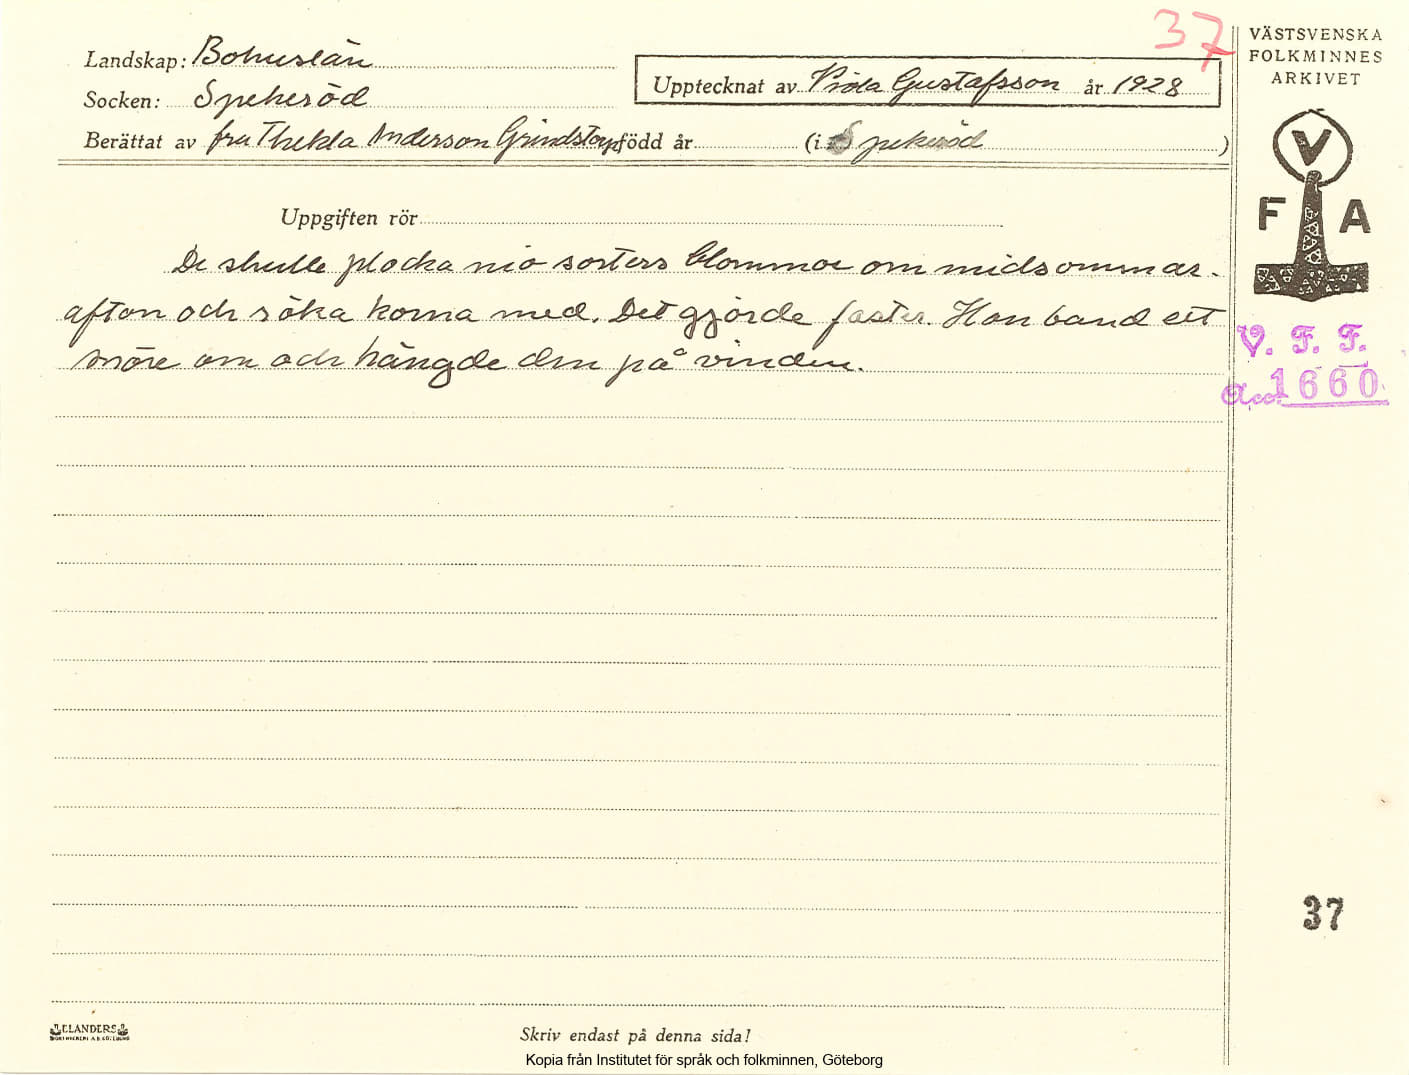 37
Landskap: Bohuslän
Socken: Spekeröd
Upptecknat av Frida Gustafsson år 1928
Berättat av fru Thekla Anderson Grindstorp född år (i Spekeröd )
Uppgiften rör
De skulle plocka nio sorters blommor om midsommar-
afton och röka korna med. Det gjorde faster. Hon band ett
snöre om och hängde dem på vinden.
VÄSTSVENSKA
FOLKMINNES
ARKIVET
V
F A
V. F. F.
Acc. 1660
37
ELANDERS
BOKTRYCKERI A.B. GÖTEBORG
Skriv endast på denna sida!
Kopia från Institutet för språk och folkminnen, Göteborg